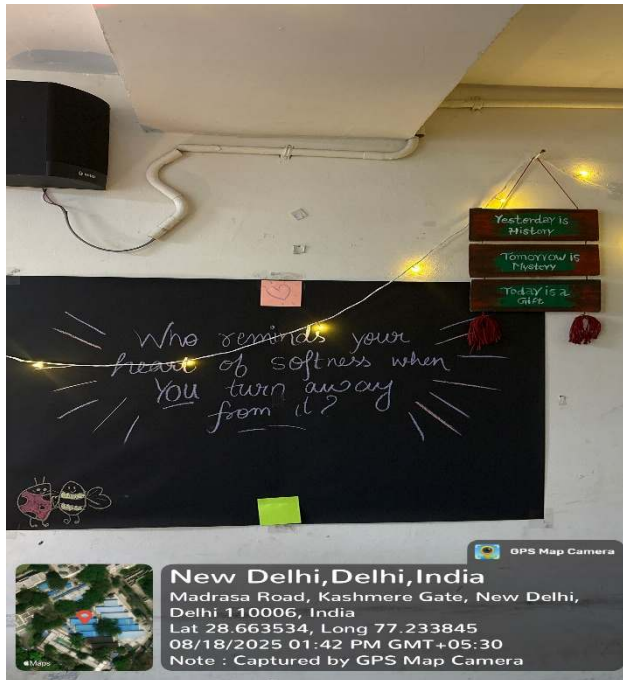 Yesterday is
History
Tomorrow is
Mystery
Today is a
Gift
Who reminds your
heart of softness when
you turn away
from it?
GPS Map Camera
New Delhi,Delhi,India
Madrasa Road, Kashmere Gate, New Delhi,
Delhi 110006, India
Lat 28.663534, Long 77.233845
08/18/2025 01:42 PM GMT+05:30
Note : Captured by GPS Map Camera
Maps